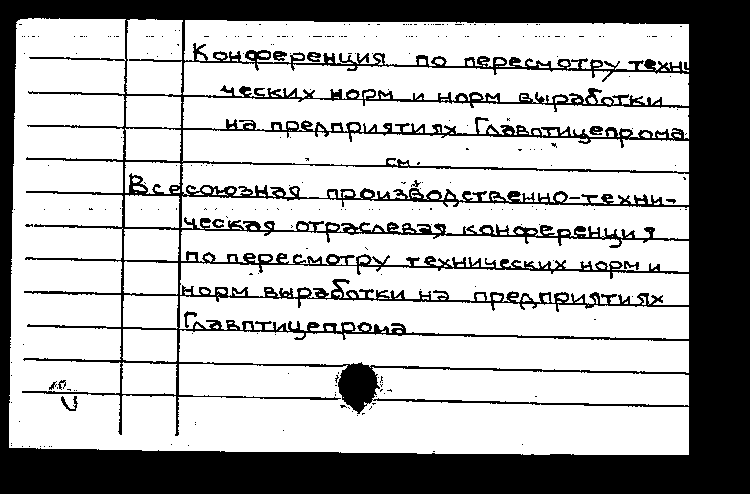 Конференция по пересмотру техни
ческих норм и норм выработки
на предприятиях Главптицепрома
см.
Всесоюзная производственно-техни-
ческая отраслевая конференция
по пересмотру технических норм и
норм выработки на предприятиях
Главптицепрома